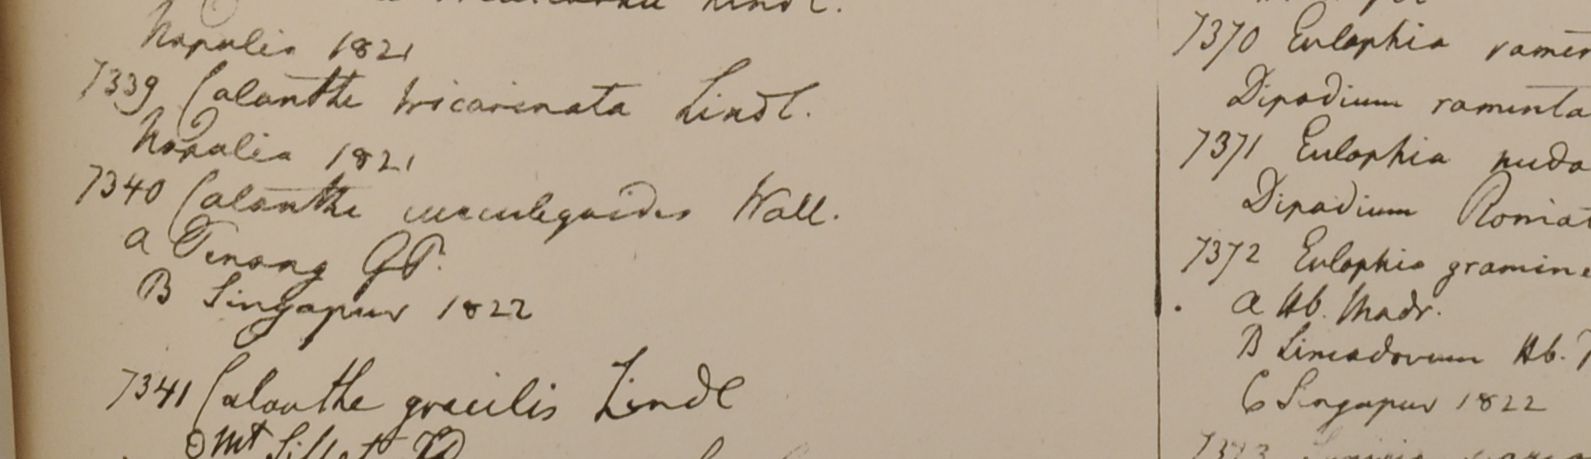 Lindl.
Napalia 1821
7339 Calanthe tricarinata Lindl.
Napalia 1821
7340 Calanthe curculigoides Wall.
a Penang GP.
B Singapur 1822
7341 Calanthe gracilis Lindl
Mt Sillet
7370 Eulophia
Dipodium
7371 Eulophia nuda
Dipodium
7372 Eulophia
a Hb. Madr.
B Limodorum Hb.
C Singapur 1822
7373